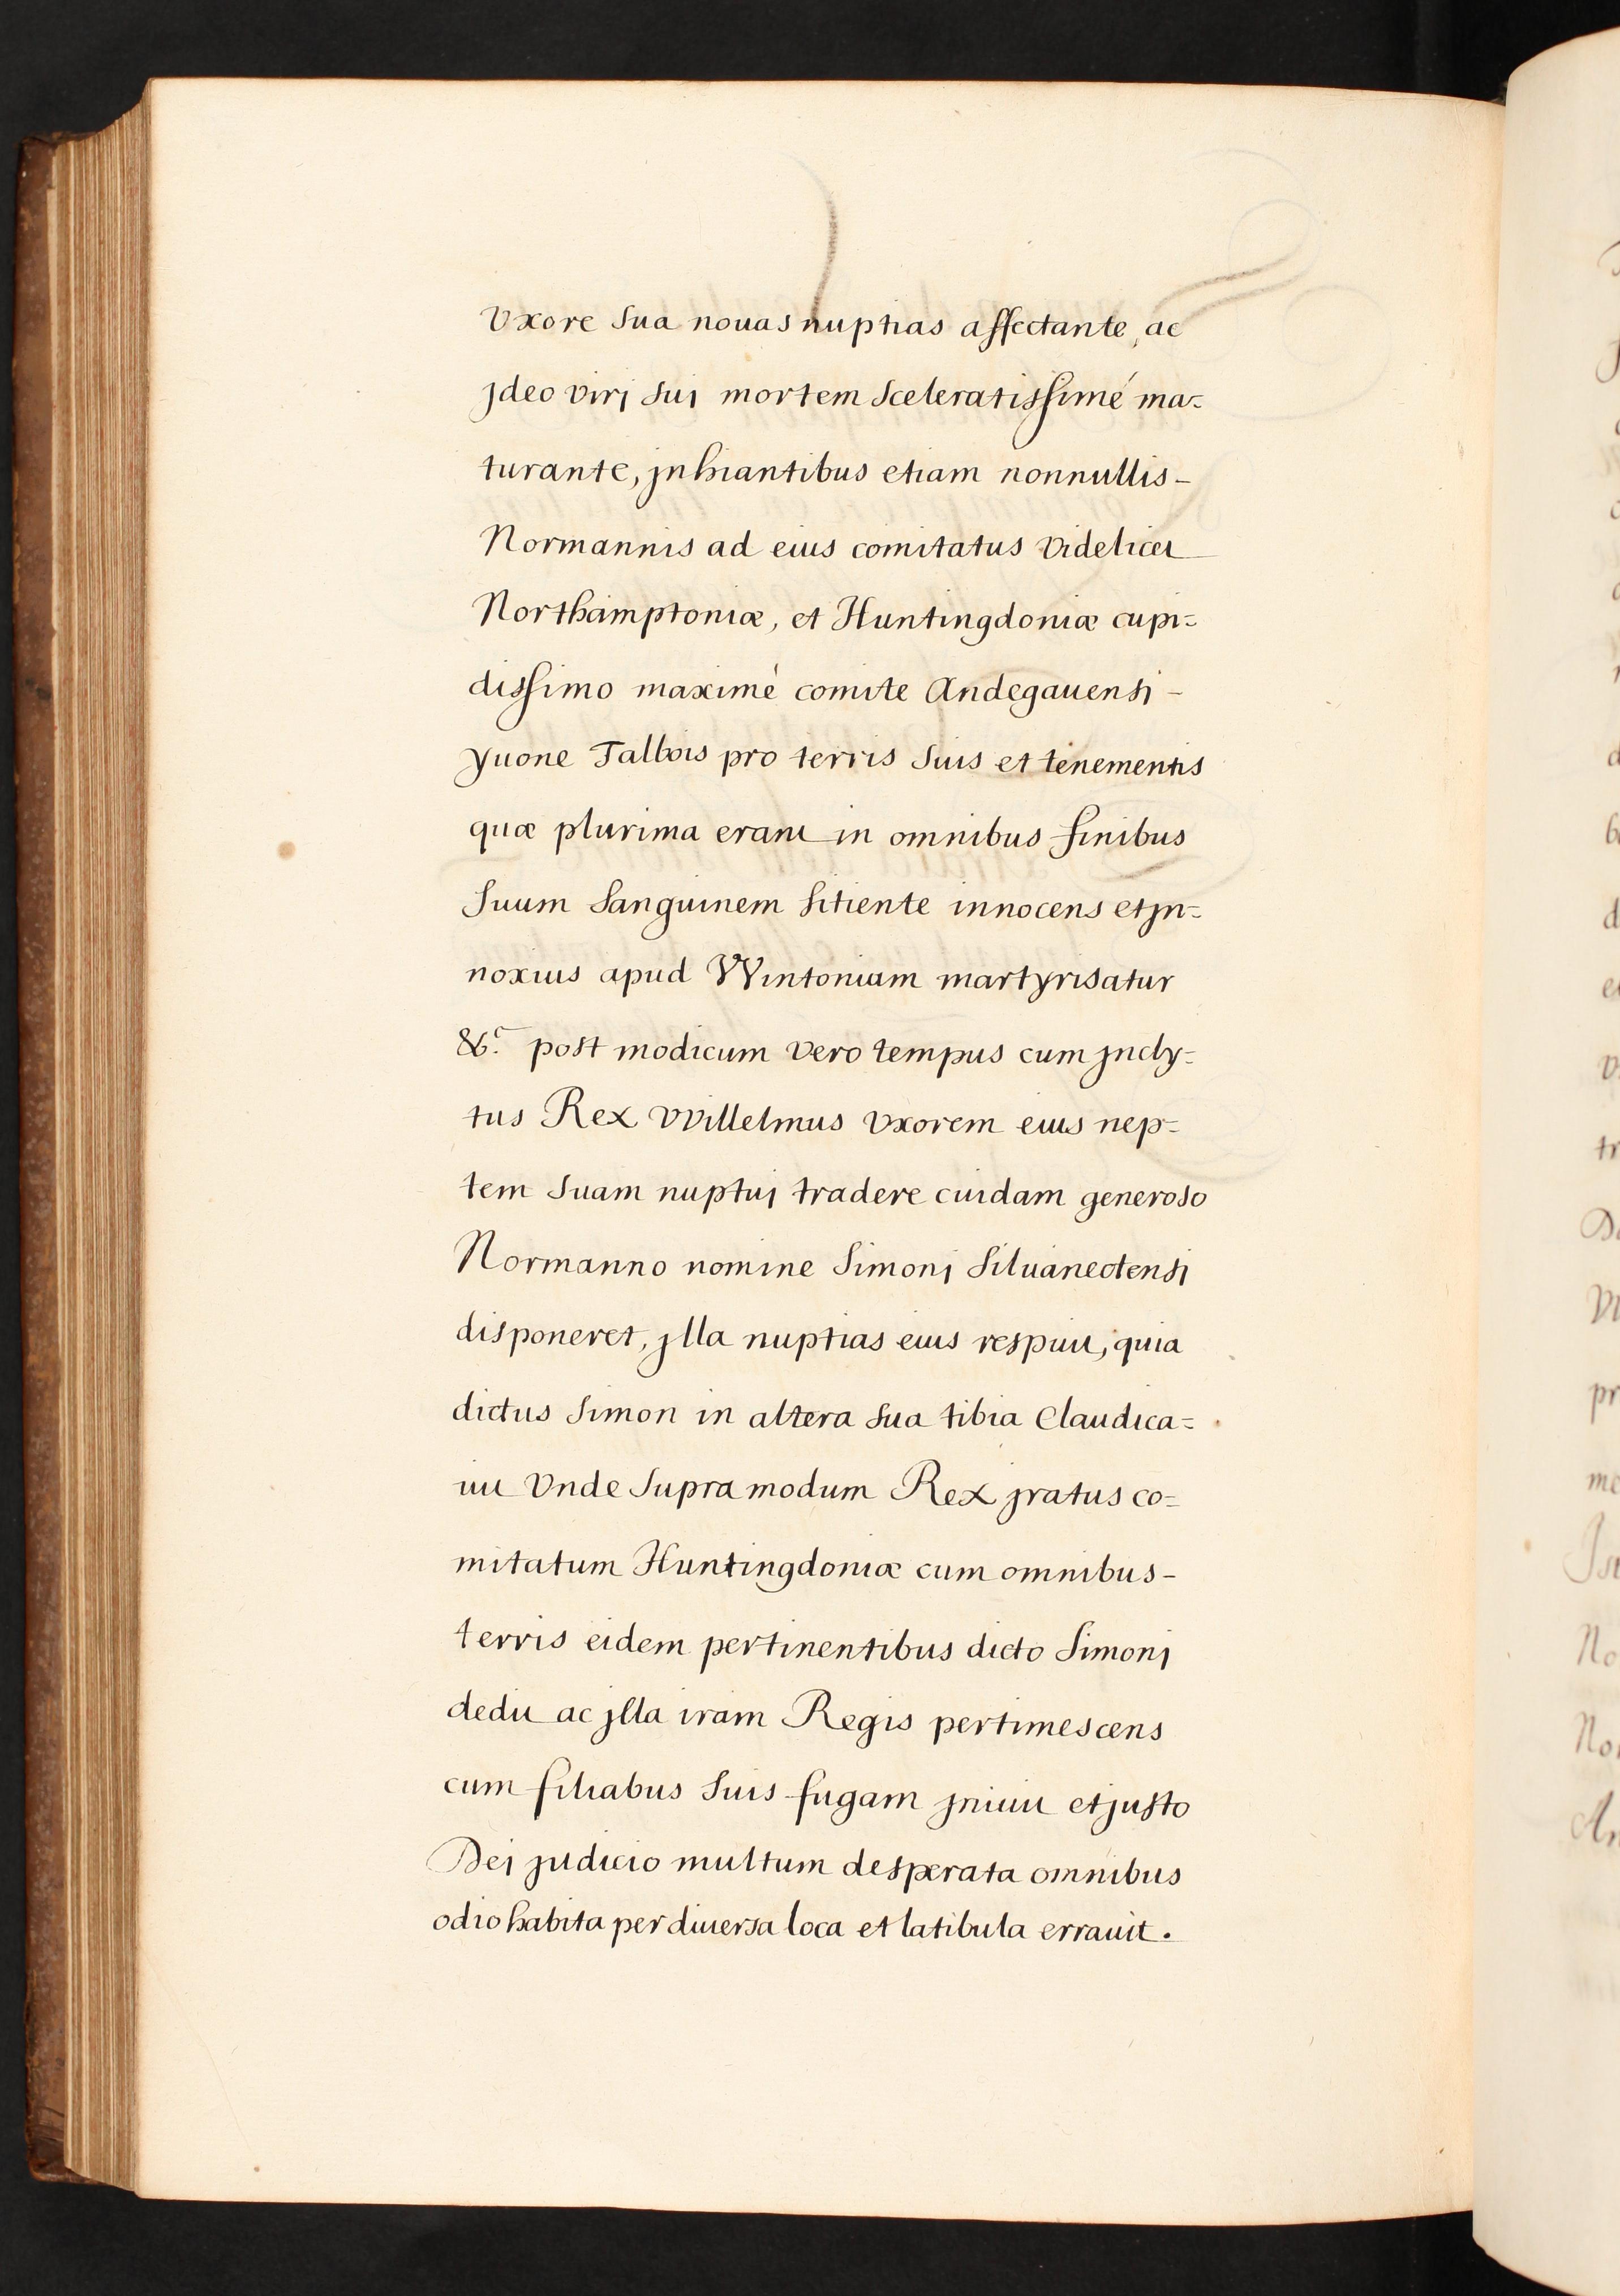 Vxore sua nouas nuptias affectante, ac
jdeo virj suj mortem sceleratissimé ma=
turante, jnhiantibus etiam nonnullis -
Normannis ad eius comitatus videlicet
Northamptoniæ, et Huntingdoniæ cupi=
dissimo maximè comite Andegauensj -
Yuone Talbois pro terris suis et tenementis
quæ plurima erant in omnibus finibus
suum sanguinem sitiente innocens et jn=
noxius apud VVintoniam martyrisatur
&c. post modicum vero tempus cum jncly=
tus Rex VVillelmus Vxorem eius nep=
tem suam nuptuj tradere cuidam generoso
Normanno nomine Simonj Siluanectensj
disponeret, jlla nuptias eius respuit, quia
dictus Simon in altera sua tibia Claudica=
uit Vnde supra modum Rex jratus co=
mitatum Huntingdoniæ cum omnibus -
terris eidem pertinentibus dicto Simonj
dedit ac jlla iram Regis pertimescens
cum filiabus suis fugam jniuit et justo
Dej judicio multum desperata omnibus
odio habita per diuersa loca et latibula errauit.